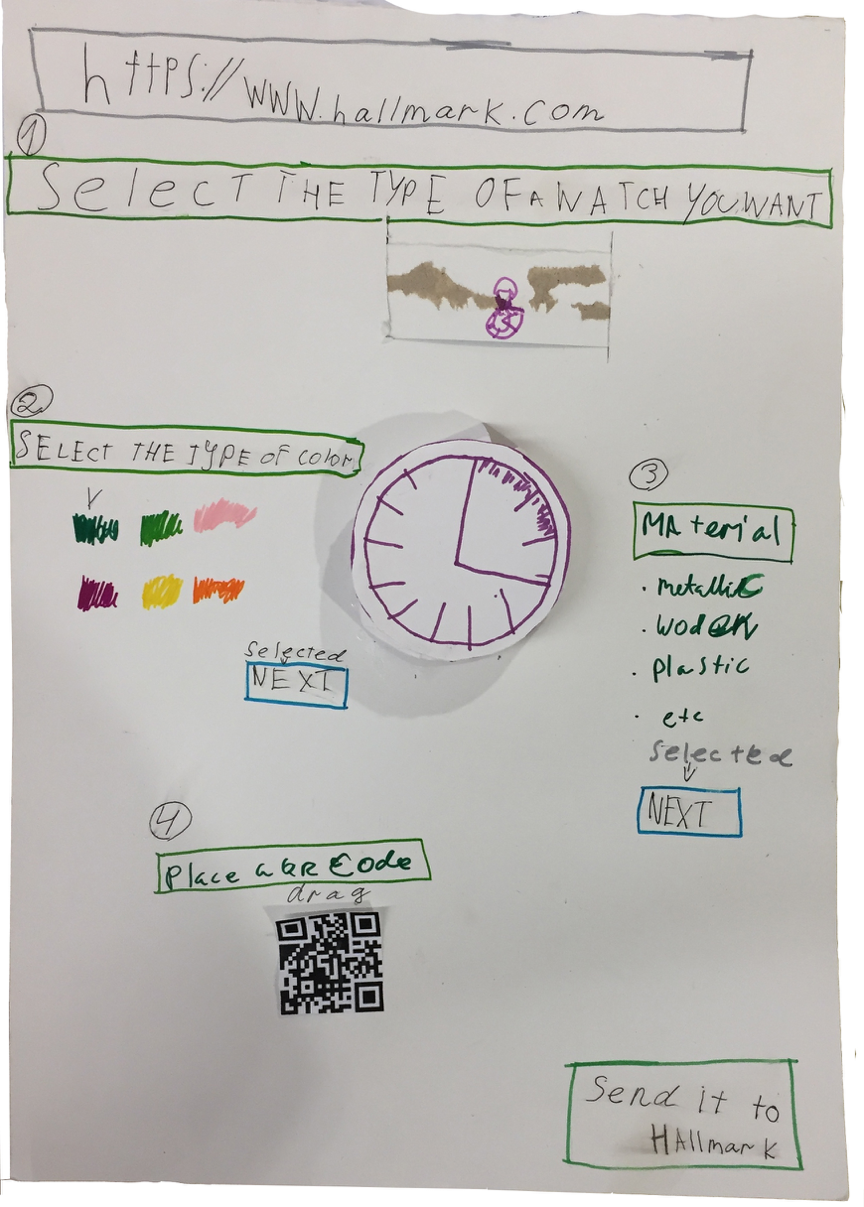 https://www.hallmark.com
1
Select THE TYPE OF A WATCH YOU WANT
2
SELECT THE TYPE OF COLOR
3
MATerial
. metallic
. woden
. plastic
. etc
Selected
NEXT
selected
NEXT
4
Place a QR Code
drag
Send it to
HAllmark